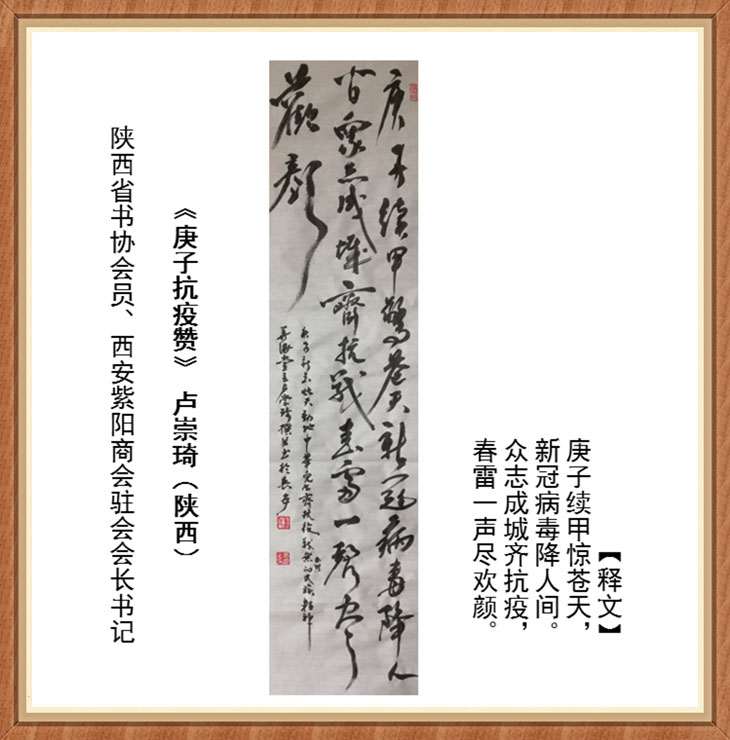 【释文】
庚子续甲惊苍天，
新冠病毒降人间。
众志成城齐抗疫，
春雷一声尽欢颜。
庚子續甲驚苍天新冠病毒降人
间眾志成城齊抗战春雷一聲尽
歡顏
《庚子抗疫赞》 卢崇琦（陕西）
陕西省书协会员、西安紫阳商会驻会会长书记